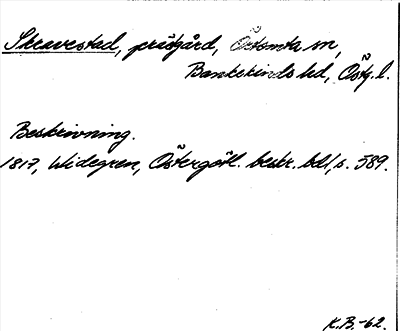 Skravestad, prästgård, Örtomta sn,
Bankekinds hd, Östg. l.
Beskrivning.
1817, Widegren, Östergötl. beskr. bd 1, s. 589.
K.B.-62.